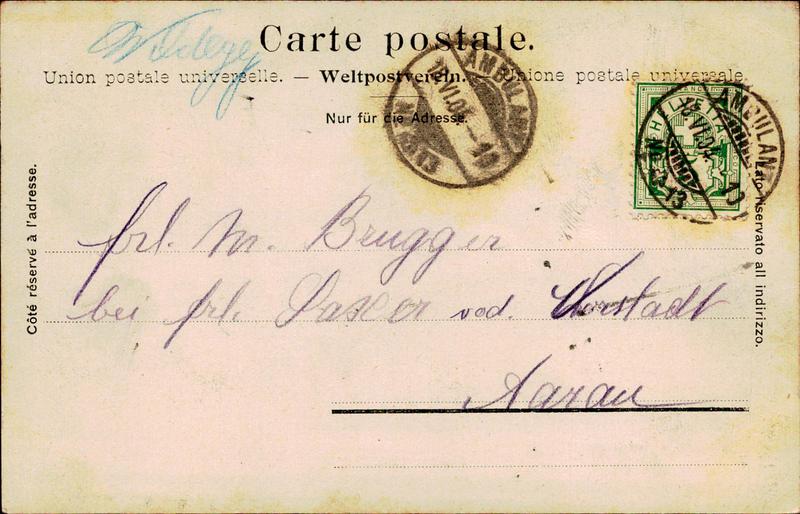 Wildegg
Carte postale.
Union postale universelle. — Weltpostverein. — Unione postale universale
Nur für die Adresse.
AMBULANT
VI.05. — 10
HELVETIA
AMBULANT
VI.05 10
Côté réservé à l'adresse.
Lato riservato all indirizzo.
frl. M. Brugger
bei frl. vod. Vorstadt
Aarau